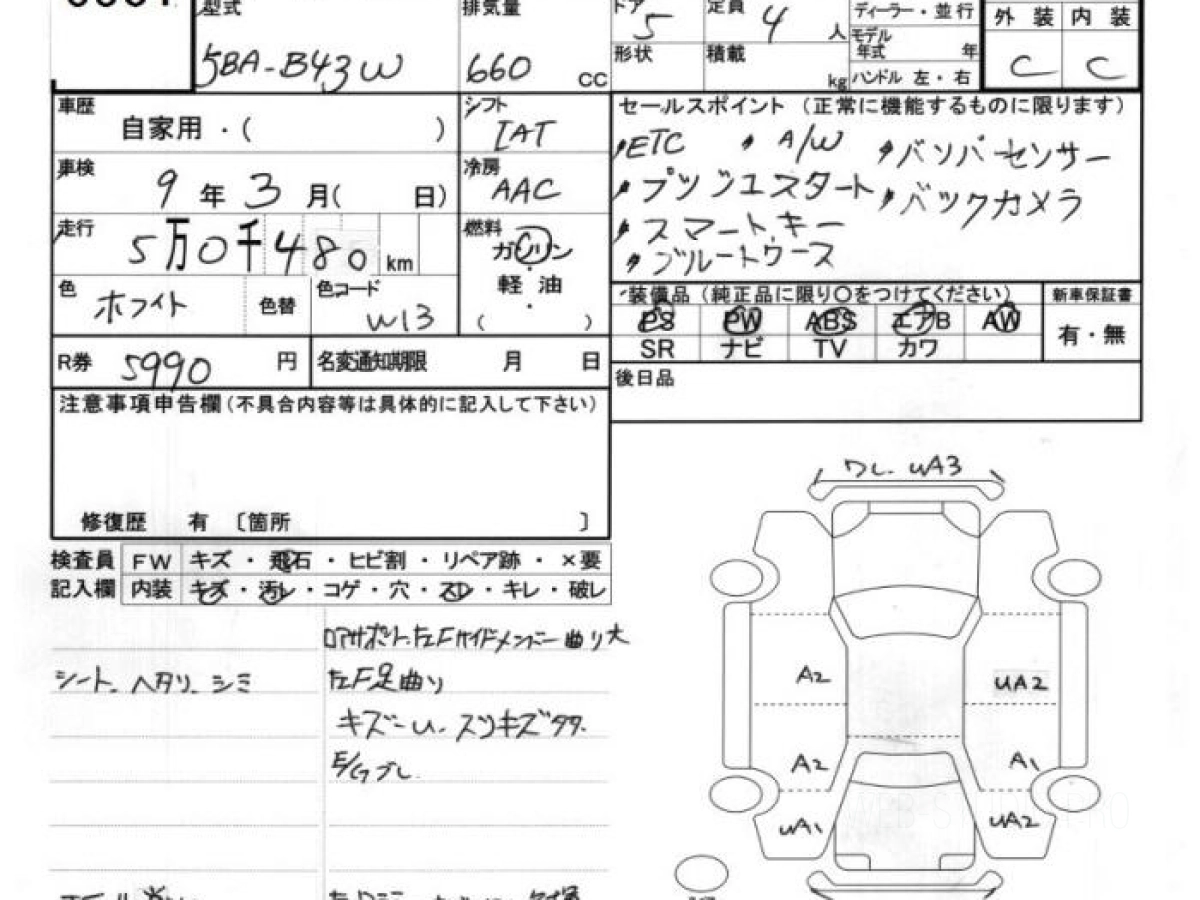 型式 排気量 ドア 5 定員 4 人 ディーラー・並行 外装 内装
5BA-B43W 660 CC 形状 積載 kg モデル年式 年 ハンドル 左・右 C C
車歴 自家用・( ) シフト IAT
セールスポイント(正常に機能するものに限ります)
ETC A/W バンパーセンサー
車検 9年3月( 日) 冷房 AAC
プッシュスタート バックカメラ
スマートキー
ブルートゥース
走行 5万0千480 km 燃料 ガソリン・軽油・( )
色 ホワイト 色替 色コード W13
装備品(純正品に限り○をつけてください) 新車保証書
PS PW ABS エアB AW 有・無
SR ナビ TV カワ
R券 5990 円 名変通知期限 月 日
後日品
注意事項申告欄(不具合内容等は具体的に記入して下さい)
修復歴 有 〔箇所 〕
検査員 FW キズ・飛石・ヒビ割・リペア跡・×要
記入欄 内装 キズ・汚レ・コゲ・穴・スレ・キレ・破レ
シート、ヘタリ、シミ
コアサポート、左Fサイドメンバー曲り大
左F足曲り
キズーU、スリキズ多々
E/Gブレ
ワレ、UA3
A2 UA2
A2 A1
UA1 UA2